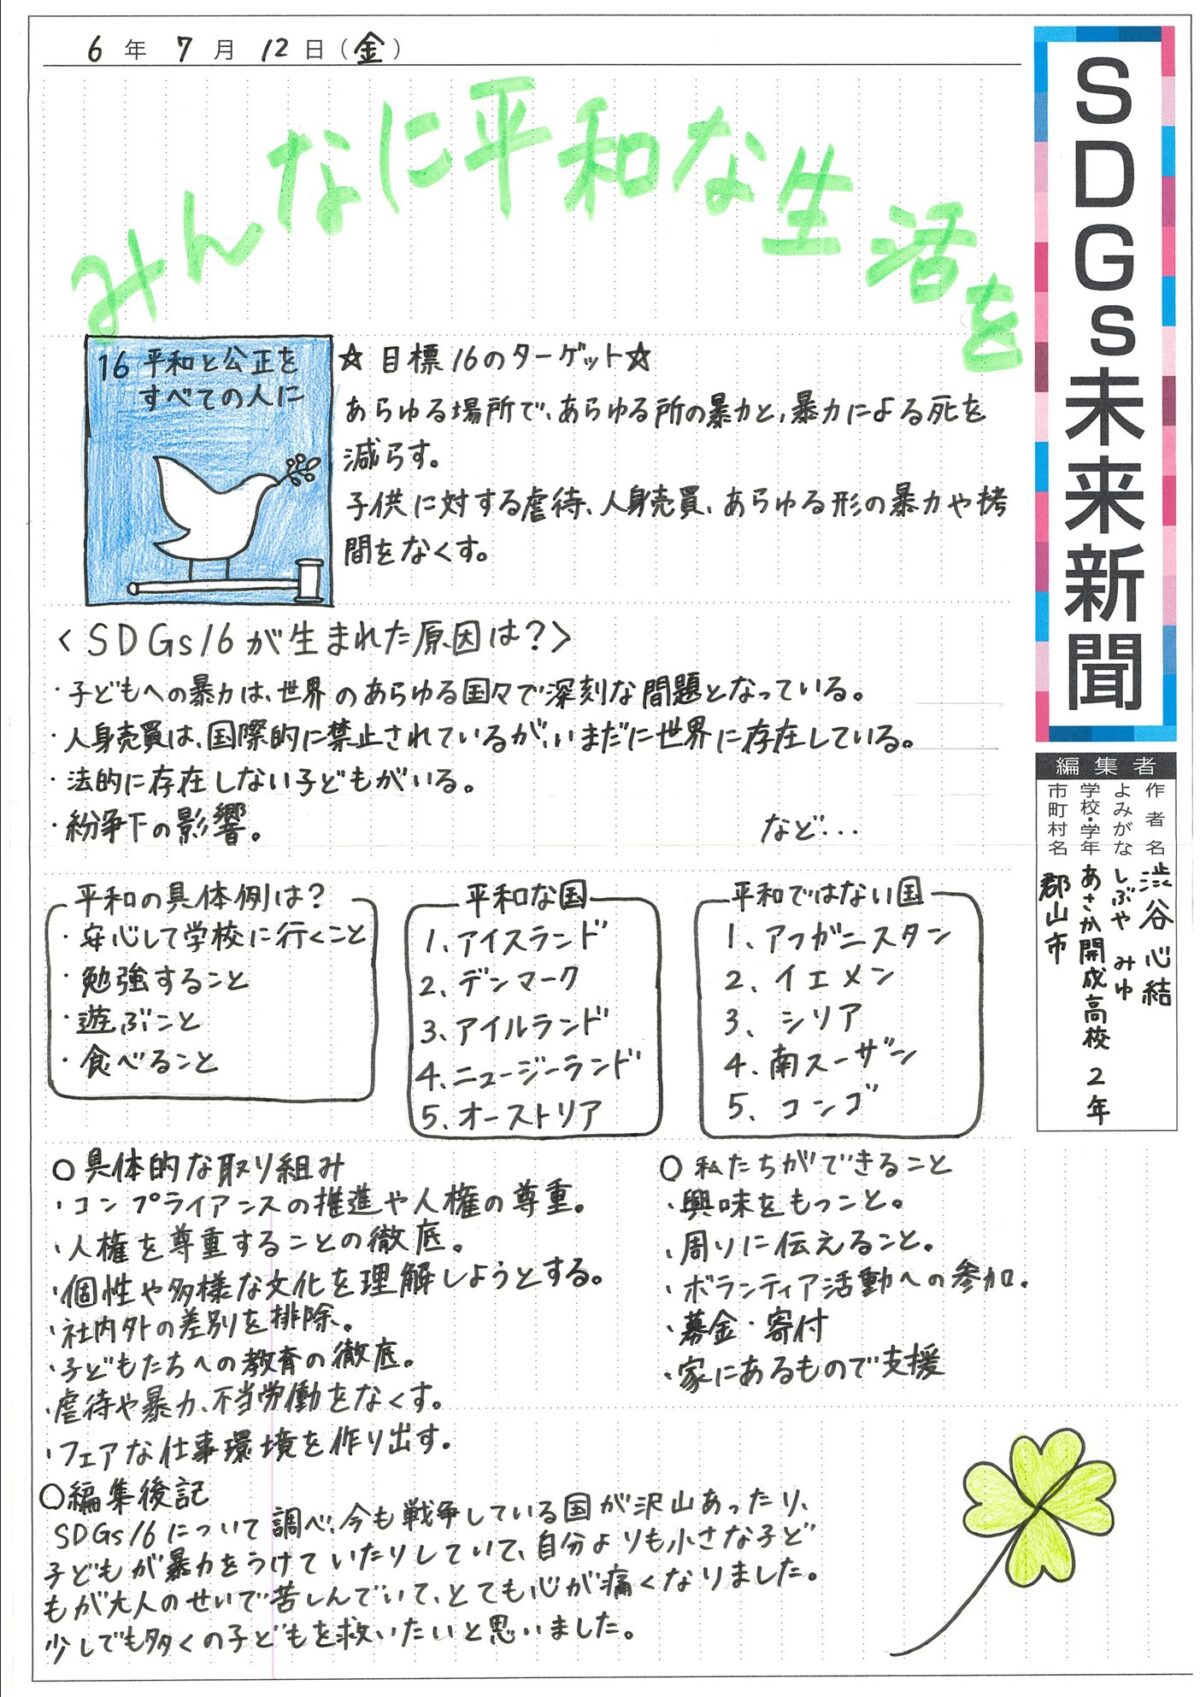 6年 7月 12日(金)
SDGs未来新聞
みんなに平和な生活を
16 平和と公正を
すべての人に
☆ 目標16のターゲット☆
あらゆる場所で、あらゆる所の暴力と、暴力による死を
減らす。
子供に対する虐待、人身売買、あらゆる形の暴力や拷
間をなくす。
編集者
作者名 渋谷 心結
よみがな しぶや みゆ
学校・学年 あさか開成高校 2年
市町村名 郡山市
<SDGs16が生まれた原因は?>
・子どもへの暴力は、世界のあらゆる国々で深刻な問題となっている。
・人身売買は、国際的に禁止されているが、いまだに世界に存在している。
・法的に存在しない子どもがいる。
・紛争下の影響。
など…
平和の具体例は?
・安心して学校に行くこと
・勉強すること
・遊ぶこと
・食べること
平和な国
1. アイスランド
2. デンマーク
3. アイルランド
4. ニュージーランド
5. オーストリア
平和ではない国
1. アフガニスタン
2. イエメン
3. シリア
4. 南スーザン
5. コンゴ
○ 具体的な取り組み
・コンプライアンスの推進や人権の尊重。
・人権を尊重することの徹底。
・個性や多様な文化を理解しようとする。
・社内外の差別を排除。
・子どもたちへの教育の徹底。
・虐待や暴力、不当労働をなくす。
・フェアな仕事環境を作り出す。
○ 私たちができること
・興味をもつこと。
・周りに伝えること。
・ボランティア活動への参加.
・募金・寄付
・家にあるもので支援
○編集後記
SDGs16について調べ、今も戦争している国が沢山あったり、
子どもが暴力をうけていたりしていて、自分よりも小さな子ど
もが大人のせいで苦しんでいて、とても心が痛くなりました。
少しでも多くの子どもを救いたいと思いました。